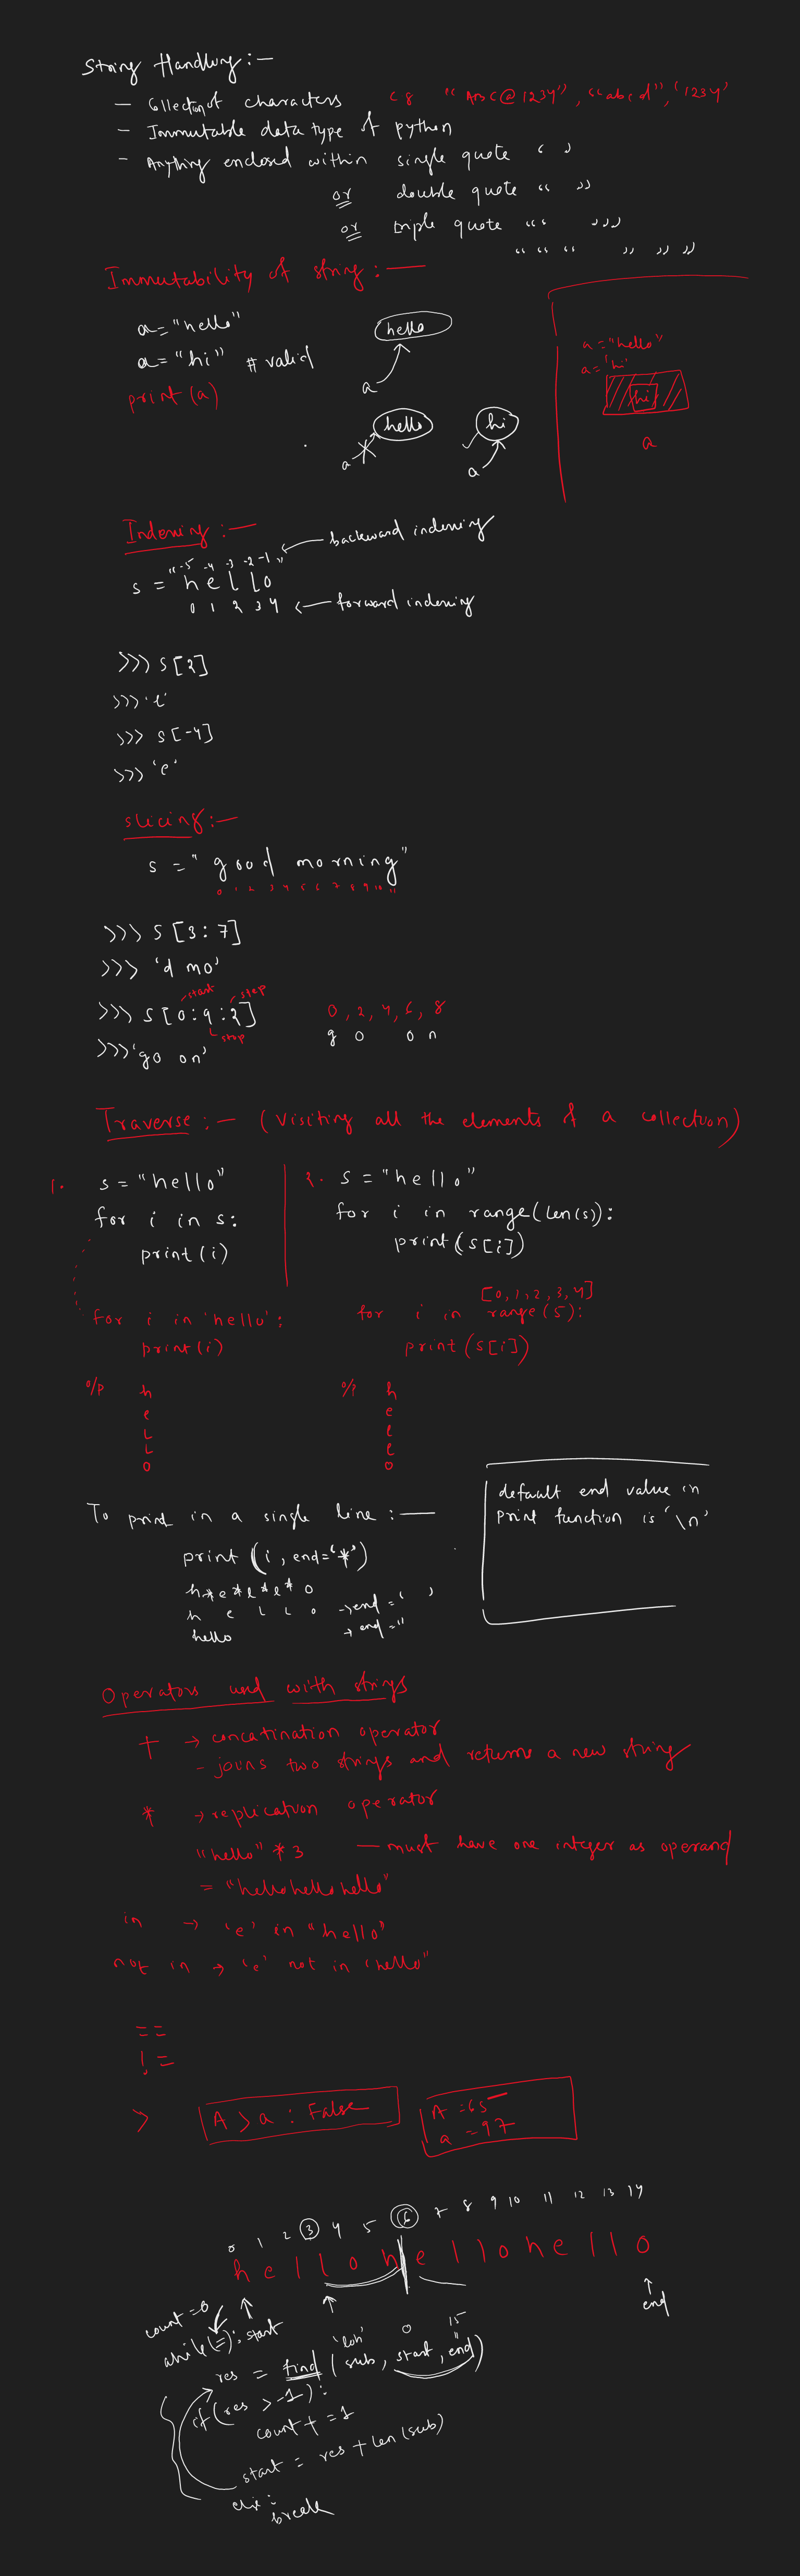 String Handling :-
- Collection of characters eg "ABC@1234", "abcd", '1234'
- Immutable data type of python
- Anything enclosed within single quote ' '
or double quote " "
or triple quote ''' '''
""" """
Immutability of string :-
a="hello"
a="hi" # valid
print(a)
hello
a
hello
a
hi
a
a="hello"
a="hi"
hi
a
Indexing :-
backward indexing
-5 -4 -3 -2 -1
s = "hello"
0 1 2 3 4
forward indexing
>>> s[2]
>>> 'l'
>>> s[-4]
>>> 'e'
slicing :-
s = "good morning"
0 1 2 3 4 5 6 7 8 9 10 11
>>> s[3:7]
>>> 'd mo'
start step
>>> s[0:9:2]
stop
0, 2, 4, 6, 8
g o o n
>>> 'go on'
Traverse :- (visiting all the elements of a collection)
1. s = "hello"
for i in s:
print(i)
2. s = "hello"
for i in range(len(s)):
print(s[i])
for i in 'hello':
print(i)
[0,1,2,3,4]
for i in range(5):
print(s[i])
o/p h
e
l
l
o
o/p h
e
l
l
o
To print in a single line :-
print(i, end='*')
h*e*l*l*o
h e l l o → end = ' '
hello → end = ''
default end value in
print function is '\n'
Operators used with strings
+ → concatination operator
- joins two strings and returns a new string
* → replication operator
"hello" * 3 — must have one integer as operand
= "hellohellohello"
in → 'e' in "hello"
not in → 'e' not in "hello"
==
!=
>
A > a : False
A = 65
a = 97
0 1 2 3 4 5 6 7 8 9 10 11 12 13 14
h e l l o h e l l o h e l l o
start
end
count = 0
while(=):
'loh' 0 15
res = find(sub, start, end)
if(res > -1):
count += 1
start = res + len(sub)
else:
break